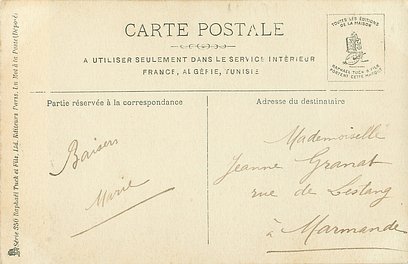 CARTE POSTALE
A UTILISER SEULEMENT DANS LE SERVICE INTÉRIEUR
FRANCE, ALGÉRIE, TUNISIE
TOUTES LES ÉDITIONS
DE LA MAISON
RAPHAEL TUCK & FILS
PORTENT CETTE
Partie réservée à la correspondance
Adresse du destinataire
Baisers
Marie
Mademoiselle
Jeanne Granat
rue de Lestang
à Marmande
Série 350 Raphael Tuck et Fils, Ltd. Editeurs Paris. Un Mot à la Poste (Déposé)